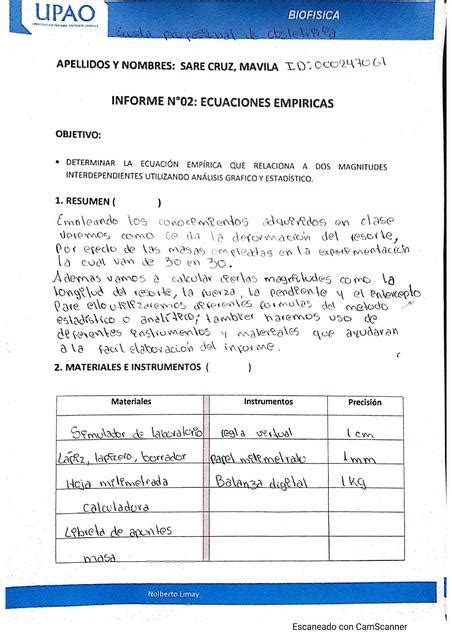 UPAO
BIOFISICA
Escuela profesional de obstetricia
APELLIDOS Y NOMBRES: SARE CRUZ, MAVILA ID:000247061
INFORME N°02: ECUACIONES EMPIRICAS
OBJETIVO:
• DETERMINAR LA ECUACIÓN EMPÍRICA QUE RELACIONA A DOS MAGNITUDES
INTERDEPENDIENTES UTILIZANDO ANÁLISIS GRAFICO Y ESTADÍSTICO.
1. RESUMEN ( )
Empleando los conocimientos adquiridos en clase
veremos como se da la deformación del resorte,
Por efecto de las masas empleadas en la experimentación
la cual van de 30 en 30.
Ademas vamos a calcular ciertas magnitudes como la
longitud del resorte, la fuerza, la pendiente y el intercepto
Para ello utilizaremos diferentes formulas del metodo
estadístico o analítico; tambien haremos uso de
diferentes instrumentos y materiales que ayudaran
a la facil elaboración del informe.
2. MATERIALES E INSTRUMENTOS ( )
Materiales Instrumentos Precisión
Simulador de laboratorio regla virtual 1 cm
Lápiz, lapicero, borrador papel milimetrado 1mm
Hoja milimetrada Balanza digital 1 Kg
Calculadora
Libreta de apuntes
masa
Nolberto Limay
Escaneado con CamScanner